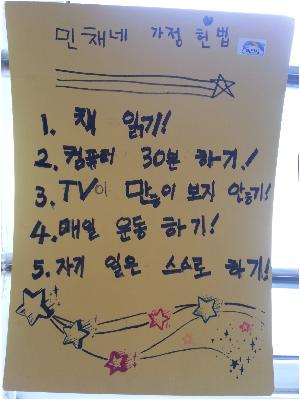 민채네 가정 헌법
1. 책 읽기!
2. 컴퓨터 30분 하기!
3. TV 많이 보지 않기!
4. 매일 운동 하기!
5. 자기 일은 스스로 하기!